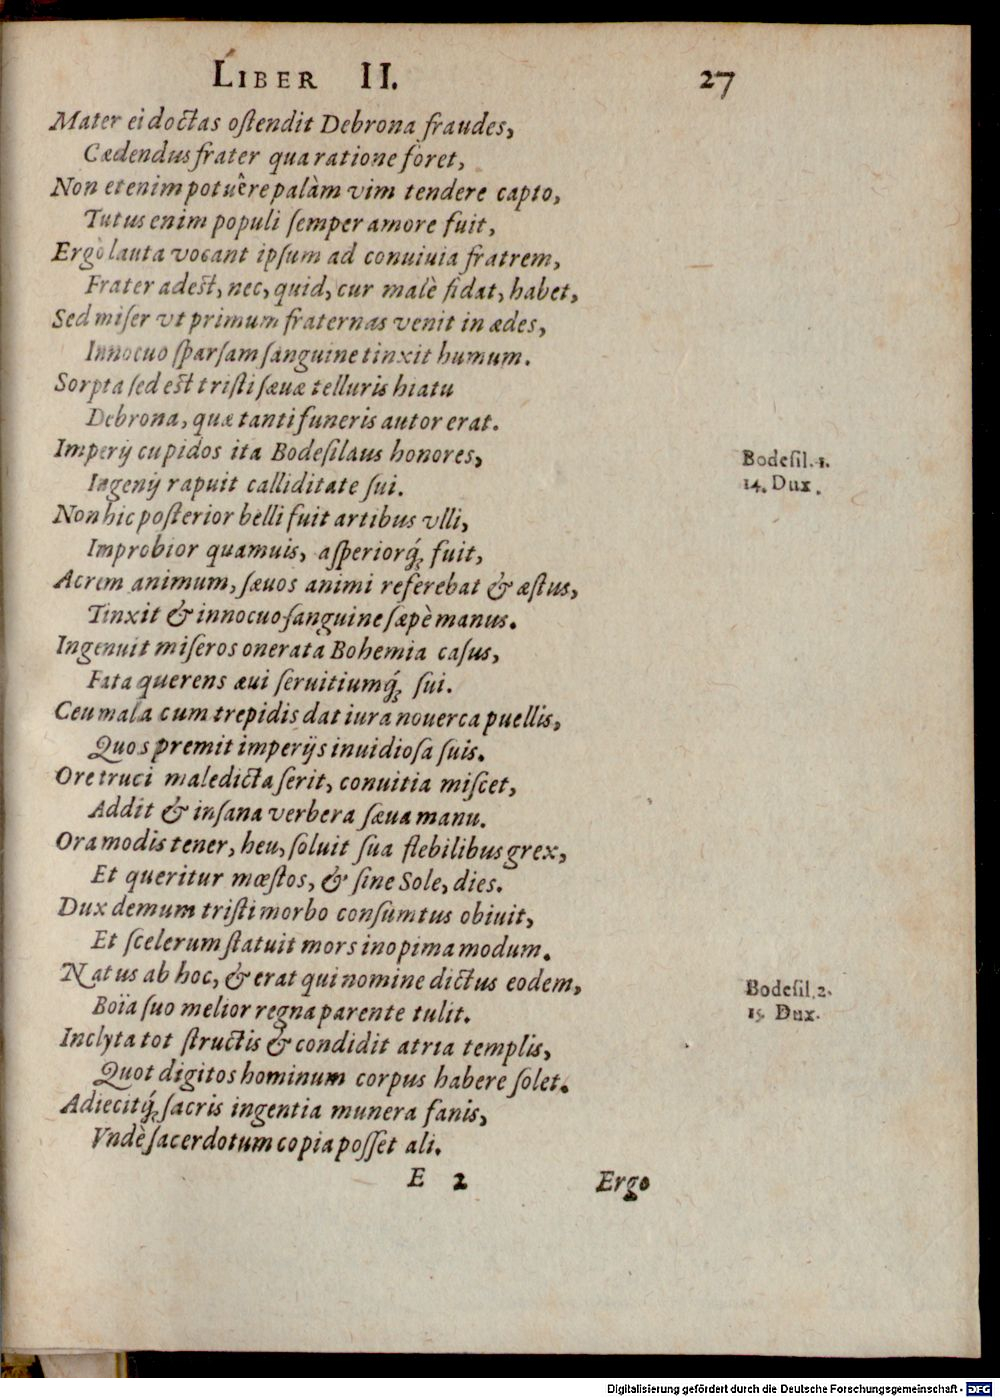 LIBER II. 27
Mater ei doctas oſtendit Debrona fraudes,
Cædendus frater qua ratione foret,
Non etenim potuêre palàm vim tendere capto,
Tutus enim populi ſemper amore fuit,
Ergò lauta vocant ipſum ad conuiuia fratrem,
Frater adeſt, nec, quid, cur malè fidat, habet,
Sed miſer vt primum fraternas venit in ædes,
Innocuo ſparſam ſanguine tinxit humum.
Sorpta ſed eſt triſti ſæuæ telluris hiatu
Debrona, quæ tanti funeris autor erat.
Imperij cupidos ita Bodeſilaus honores,
Bodeſil. 1.
Ingenij rapuit calliditate ſui.
14. Dux.
Non hic poſterior belli fuit artibus vlli,
Improbior quamuis, aſperiorq́; fuit,
Acrem animum, ſæuos animi referebat & æſtus,
Tinxit & innocuo ſanguine ſæpè manus.
Ingenuit miſeros onerata Bohemia caſus,
Fata querens æui ſeruitiumq́; ſui.
Ceu mala cum trepidis dat iura nouerca puellis,
Quos premit imperijs inuidioſa ſuis.
Ore truci maledicta ſerit, conuitia miſcet,
Addit & inſana verbera ſæua manu.
Ora modis tener, heu, ſoluit ſua flebilibus grex,
Et queritur mœſtos, & ſine Sole, dies.
Dux demum triſti morbo conſumtus obiuit,
Et ſcelerum ſtatuit mors inopima modum.
Natus ab hoc, & erat qui nomine dictus eodem,
Bodeſil. 2.
Boïa ſuo melior regna parente tulit.
15 Dux.
Inclyta tot ſtructis & condidit atria templis,
Quot digitos hominum corpus habere ſolet.
Adiecitq́; ſacris ingentia munera fanis,
Vndè ſacerdotum copia poſſet ali.
E 2 Ergo
Digitalisierung gefördert durch die Deutsche Forschungsgemeinschaft - DFG